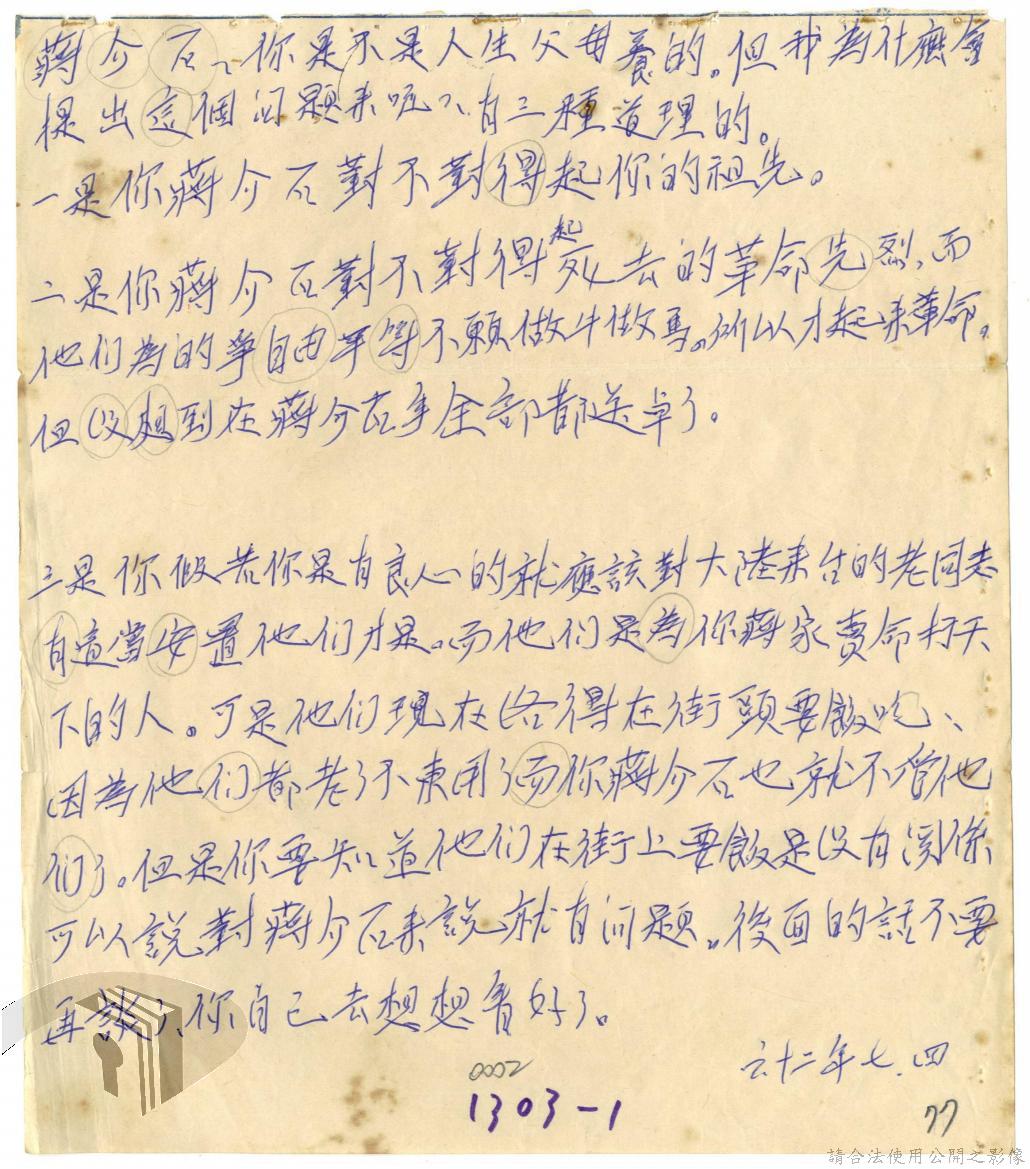 蔣介石、你是不是人生父母養的。但我為什麽會
提出這個问題来呢、有三種道理的。
一是你蔣介石對不對得起你的祖先。
二是你蔣介石對不對得起死去的革命先烈、而
他们為的爭自由平等不願做牛做馬。所以才起来革命。
但没想到在蔣介石手全部都送卓了。
三是你假若你是有良心的就應該對大陸来台的老同志
有適當安置他们才是。而他们是為你蔣家賣命打天
下的人。可是他们現在落得在街頭要飯吃、
因為他们都老了不東用了而你蔣介石也就不管他
们了。但是你要知道他们在街上要飯是没有関係
可以説對蔣介石来説就有问題。後面的話不要
再談了、你自己去想想看好了。
六十二年七.四
0002
1303-1
77
請合法使用公開之影像